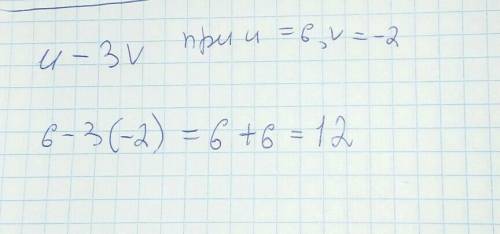 u - 3v при u = 6, v = -2
6 - 3(-2) = 6 + 6 = 12